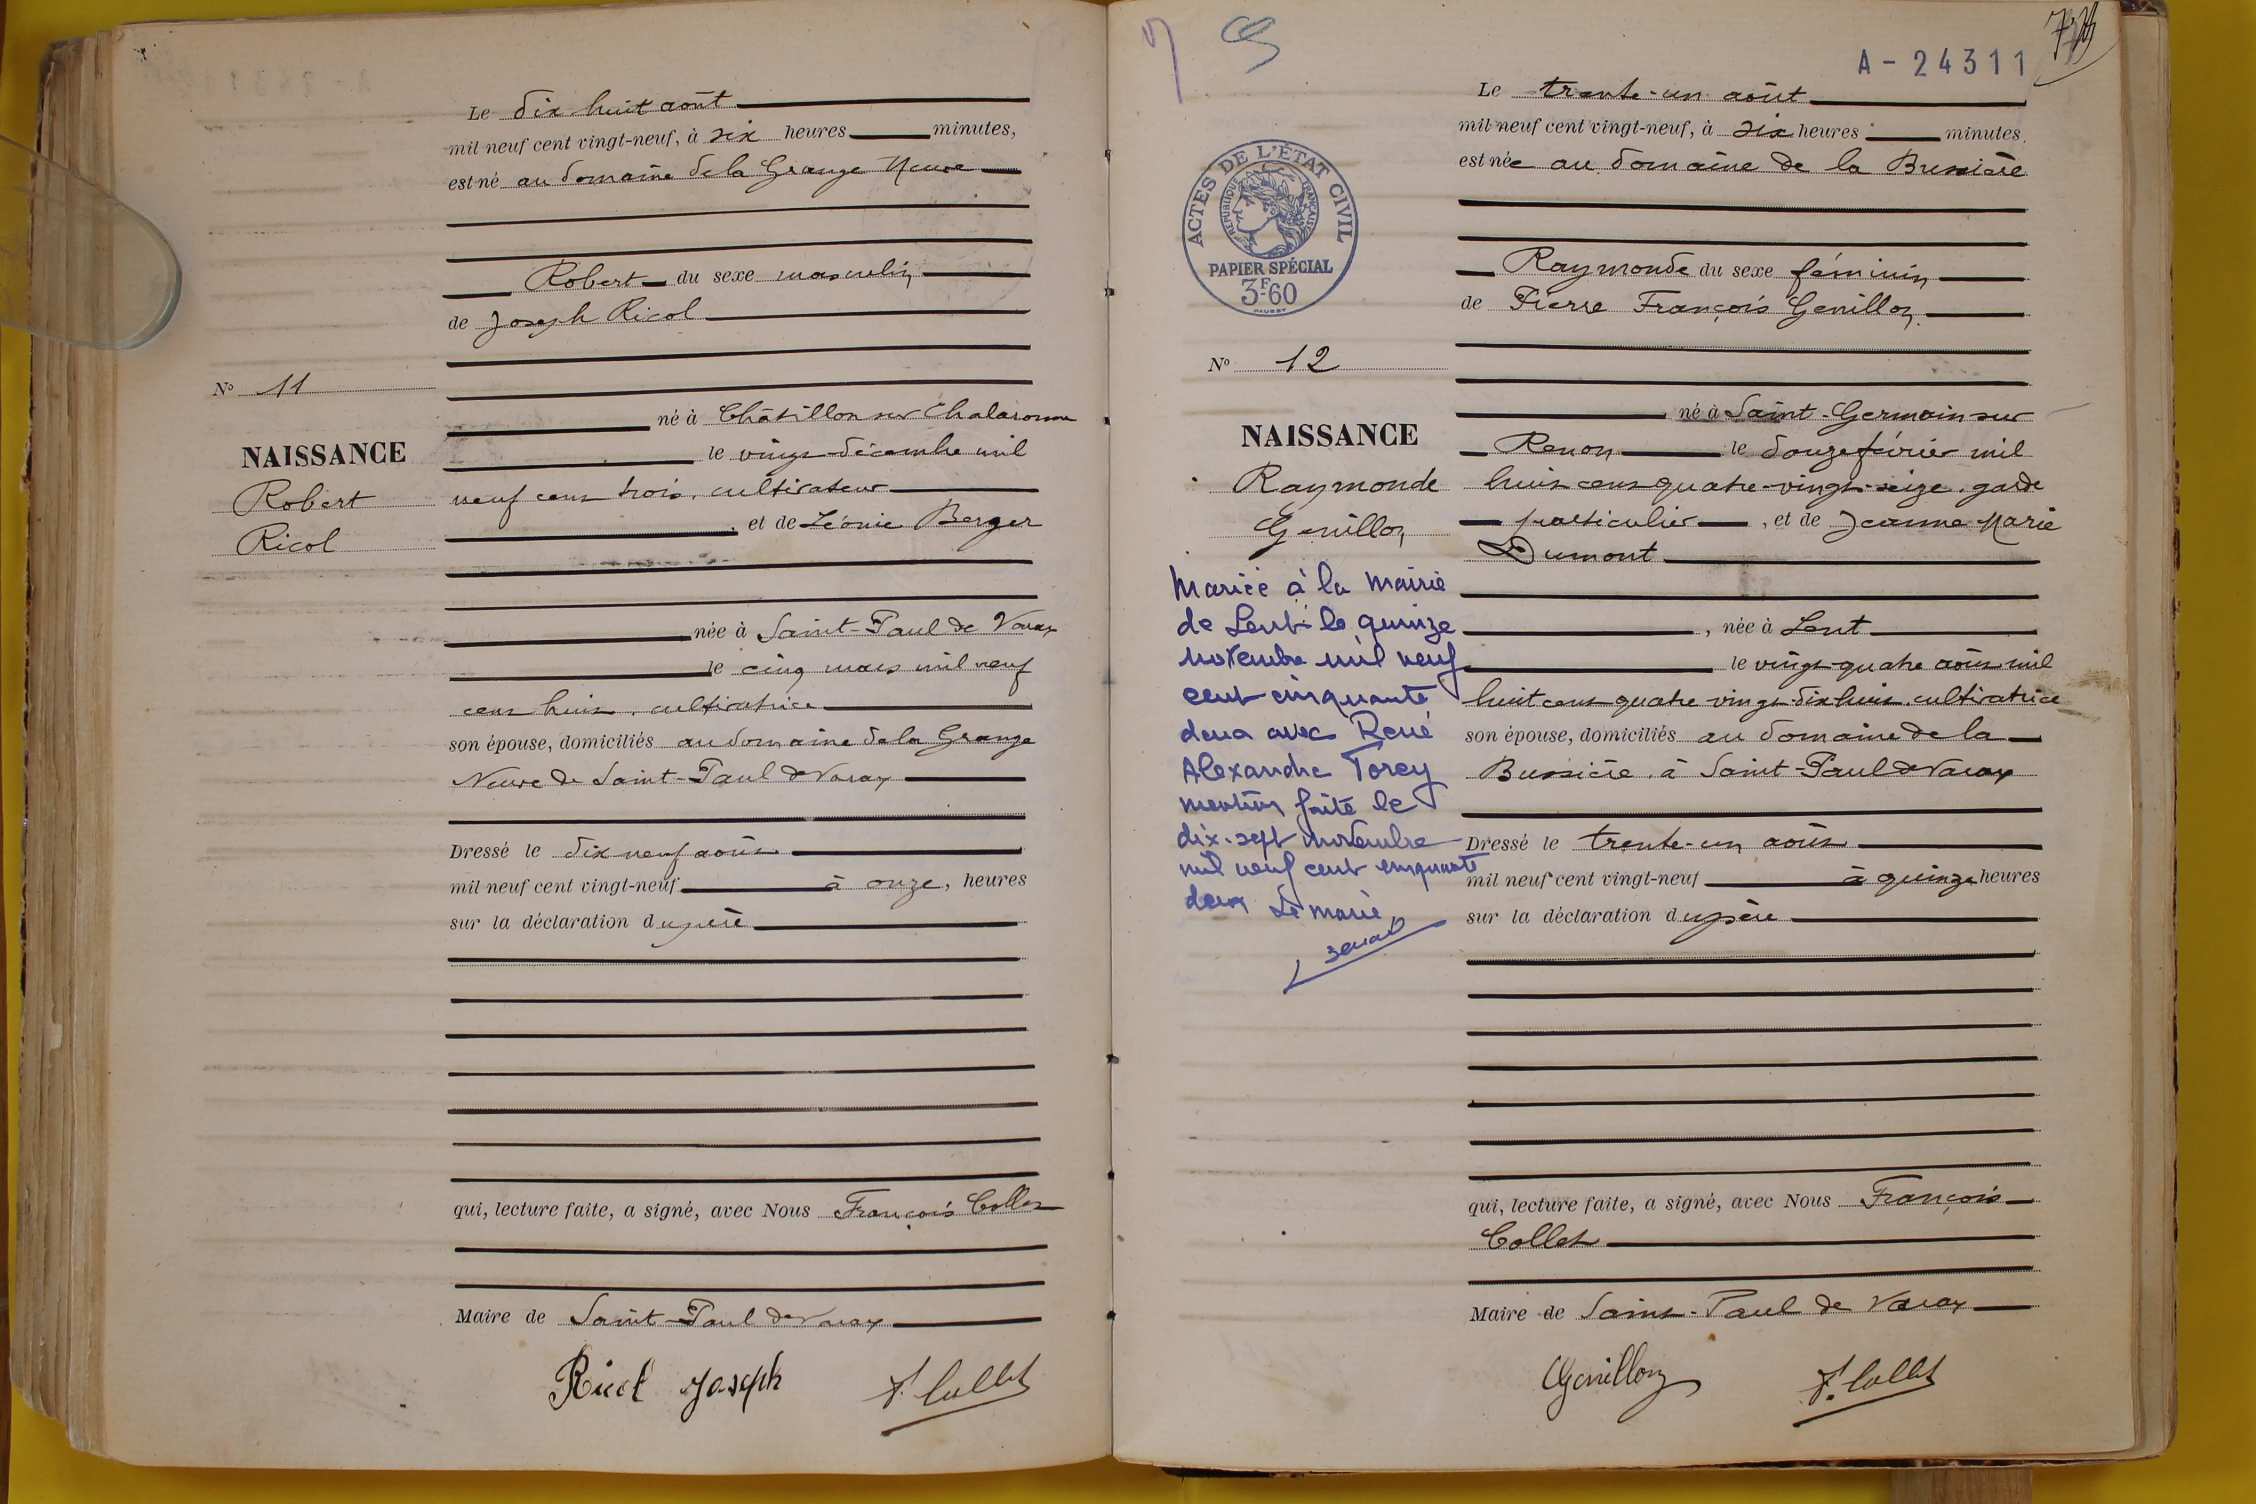 Le dix-huit août
mil neuf cent vingt-neuf, à six heures minutes,
est né au domaine de la Grange Neuve
Robert du sexe masculin
de Joseph Ricol
N° 11
né à Châtillon sur Chalaronne
NAISSANCE
le vingt-décembre mil
Robert
neuf cent trois, cultivateur
Ricol
, et de Léonie Berger
née à Saint-Paul de Varax
le cinq mars mil neuf
cent huit, cultivatrice
son épouse, domiciliés au domaine de la Grange
Neuve de Saint-Paul de Varax
Dressé le dix neuf août
mil neuf cent vingt-neuf à onze, heures
sur la déclaration du père
qui, lecture faite, a signé, avec Nous François Collet
Maire de Saint-Paul de Varax
Ricol Joseph F. Collet
A-24311
Le trente-un août
mil neuf cent vingt-neuf, à six heures minutes.
est née au domaine de la Bussière
ACTES DE L'ÉTAT CIVIL
RÉPUBLIQUE FRANÇAISE
PAPIER SPÉCIAL
3F-60
Raymonde du sexe féminin
de Pierre François Genillon
N° 12
né à Saint-Germain sur
NAISSANCE
Renon le douze février mil
Raymonde
huit cent quatre-vingt-seize, garde
Genillon
particulier, et de Jeanne Marie
Dumont
Mariée à la Mairie
de Lent le quinze
novembre mil neuf
cent cinquante
deux avec René
Alexandre Torey
mention faite le
dix-sept novembre
mil neuf cent cinquante
deux Le maire
, née à Lent
le vingt-quatre août mil
huit cent quatre vingt-dix huit, cultivatrice
son épouse, domiciliés au domaine de la
Bussière, à Saint-Paul de Varax
Dressé le trente-un août
mil neuf cent vingt-neuf à quinze heures
sur la déclaration du père
qui, lecture faite, a signé, avec Nous François
Collet
Maire de Saint-Paul de Varax
Genillon F. Collet